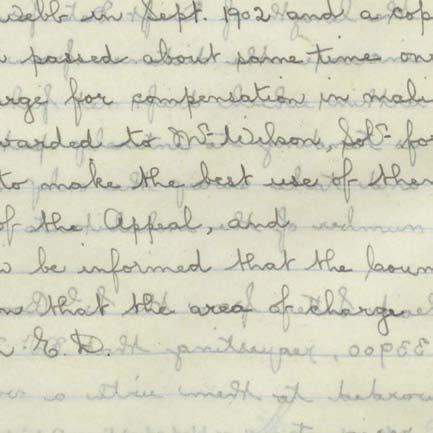 Webb in Sept. 1902 and a cop
passed about same time on
arge for compensation in mali
warded to Mr. Wilson, Solr. for
to make the best use of them
of the Appeal, and
be informed that the Coun
that the area of charge
E.D.